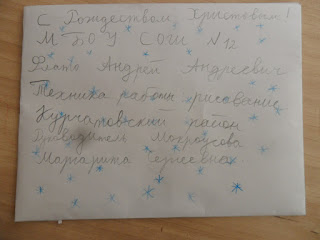 С Рождеством Христовым!
М БОУ СОШ N 12
Андрей Андреевич
Техника работы рисование
Курчатовский район
Руководитель
Маргарита Сергеевна